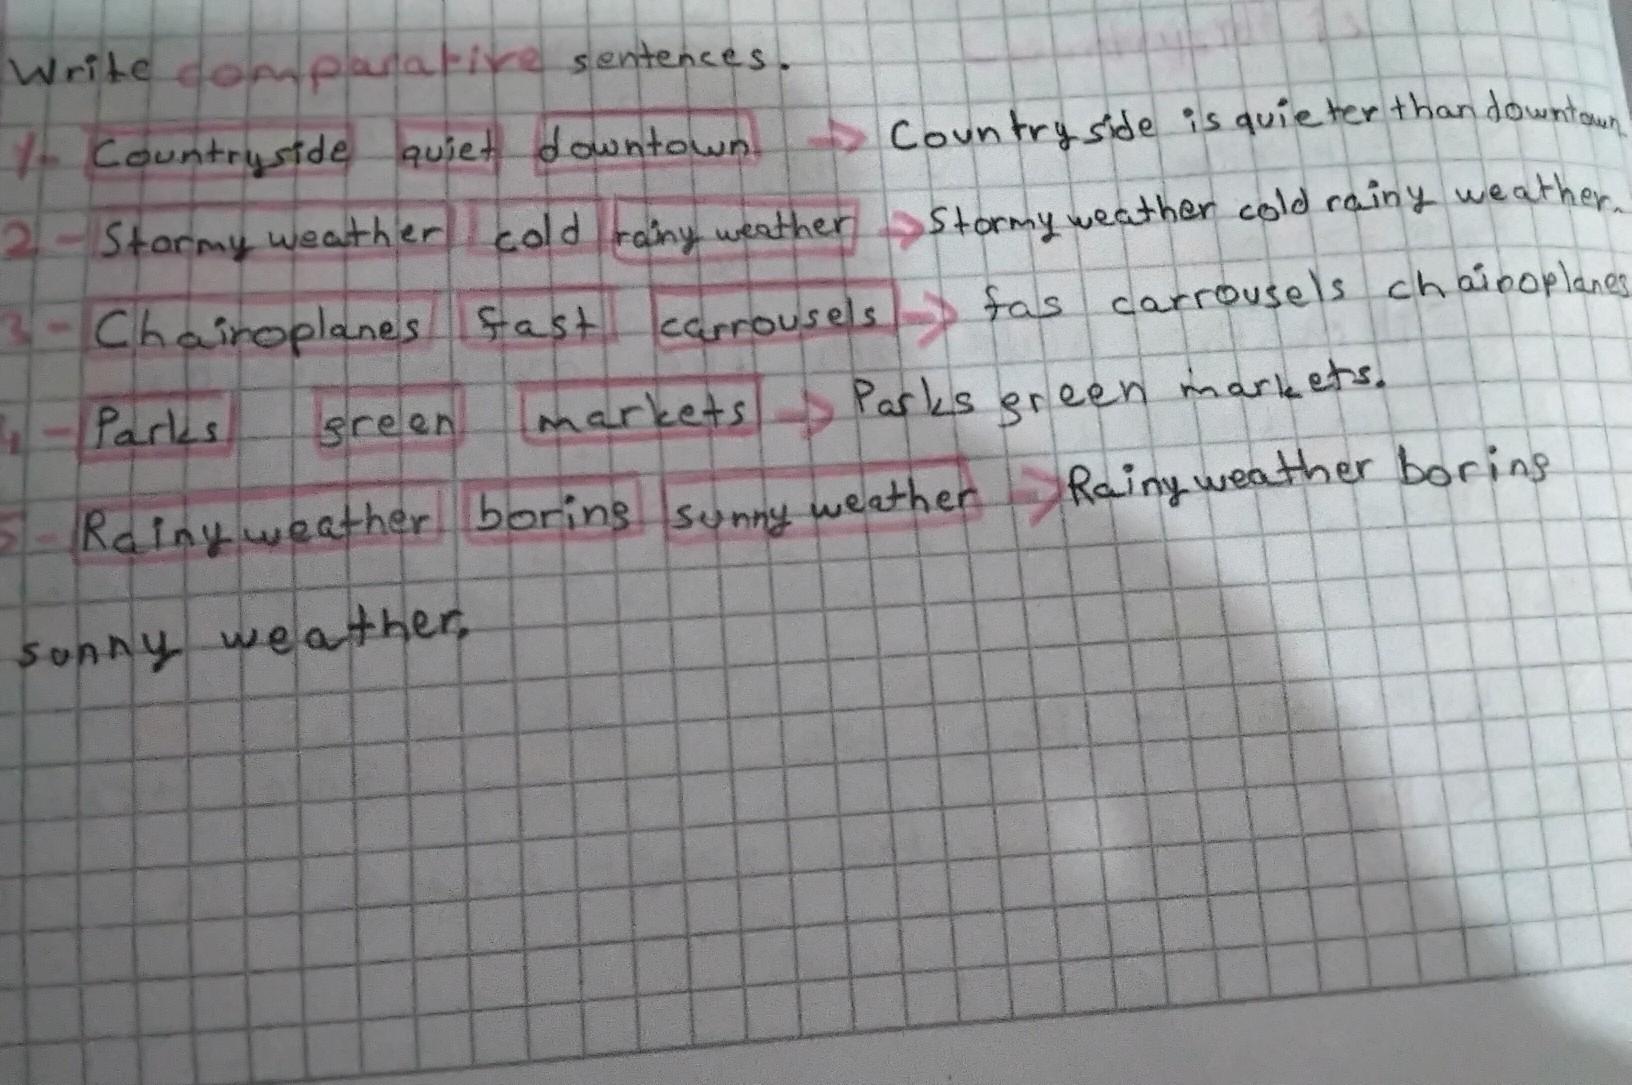 Write comparative sentences.
1- Countryside quiet downtown → Countryside is quieter than downtown
2- Stormy weather cold rainy weather → Stormy weather cold rainy weather.
3- Chairoplanes fast carrousels → fas carrousels chairoplanes
4- Parks green markets → Parks green markets.
5- Rainy weather boring sunny weather → Rainy weather boring
sunny weather.